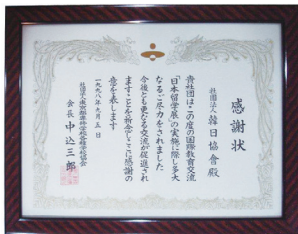 感謝状
社団法人 韓日協會 殿
貴社団はこの度の国際教育交流
「日本留学展」の実施に際し多大
なるご尽力をされました
今後とも更なる交流が促進され
ますことを祈念しここに感謝の
意を表します
一九九八年九月五日
社団法人東京都専修学校各種学校協会
会長 中込三郎